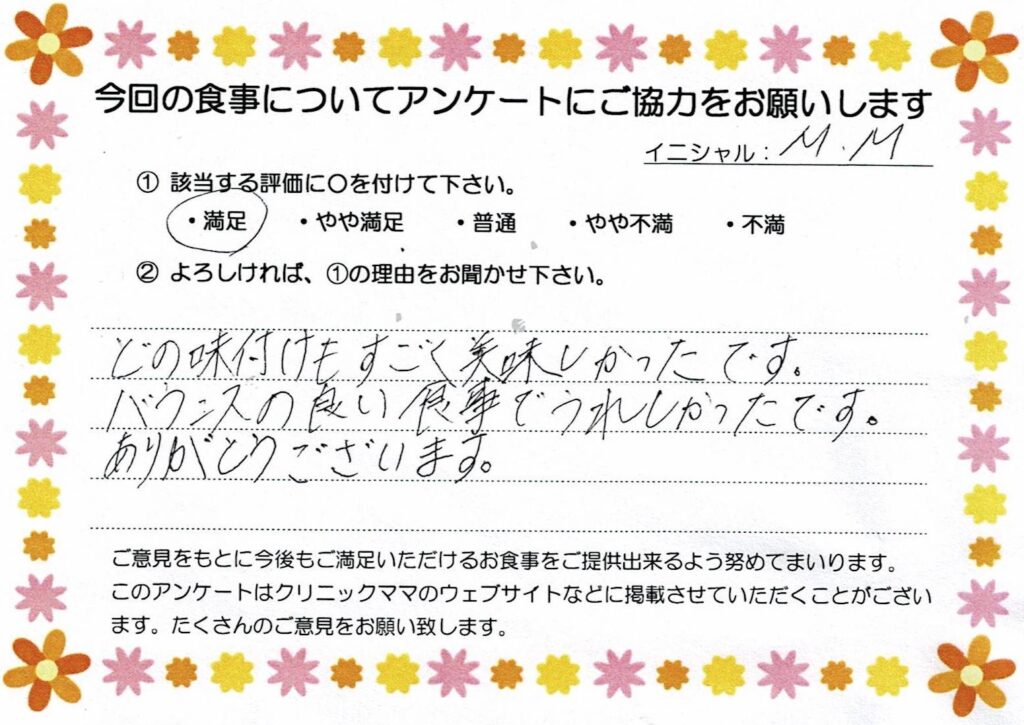 今回の食事についてアンケートにご協力をお願いします
イニシャル： M.M
① 該当する評価に○を付けて下さい。
・満足 ・やや満足 ・普通 ・やや不満 ・不満
② よろしければ、①の理由をお聞かせ下さい。
どの味付けもすごく美味しかったです。
バランスの良い食事でうれしかったです。
ありがとうございます。
ご意見をもとに今後もご満足いただけるお食事をご提供出来るよう努めてまいります。
このアンケートはクリニックママのウェブサイトなどに掲載させていただくことがござい
ます。たくさんのご意見をお願い致します。